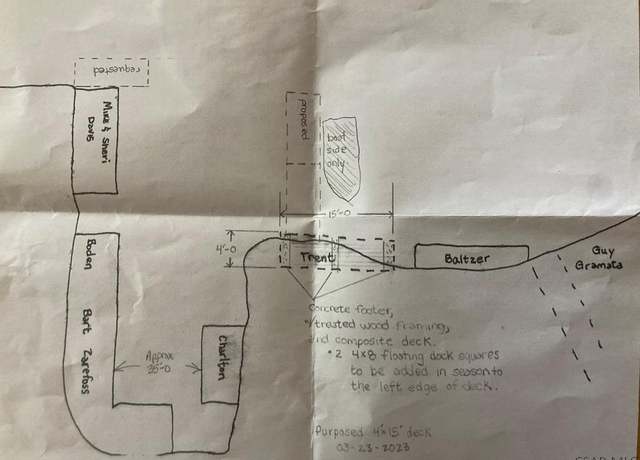 requested
Mike & Sheri
Davis
proposed
boat
side
only
15'-0
4'-0
Trent
Baltzer
Guy
Gramata
Boden
Bart Zarefoss
Approx
35'-0
Charlton
Concrete footer,
trasted wood framing,
and composite deck.
*2 4x8 floating dock squares
to be added in season to
the left edge of deck.
Purposed 4'x15' deck
03-23-2023